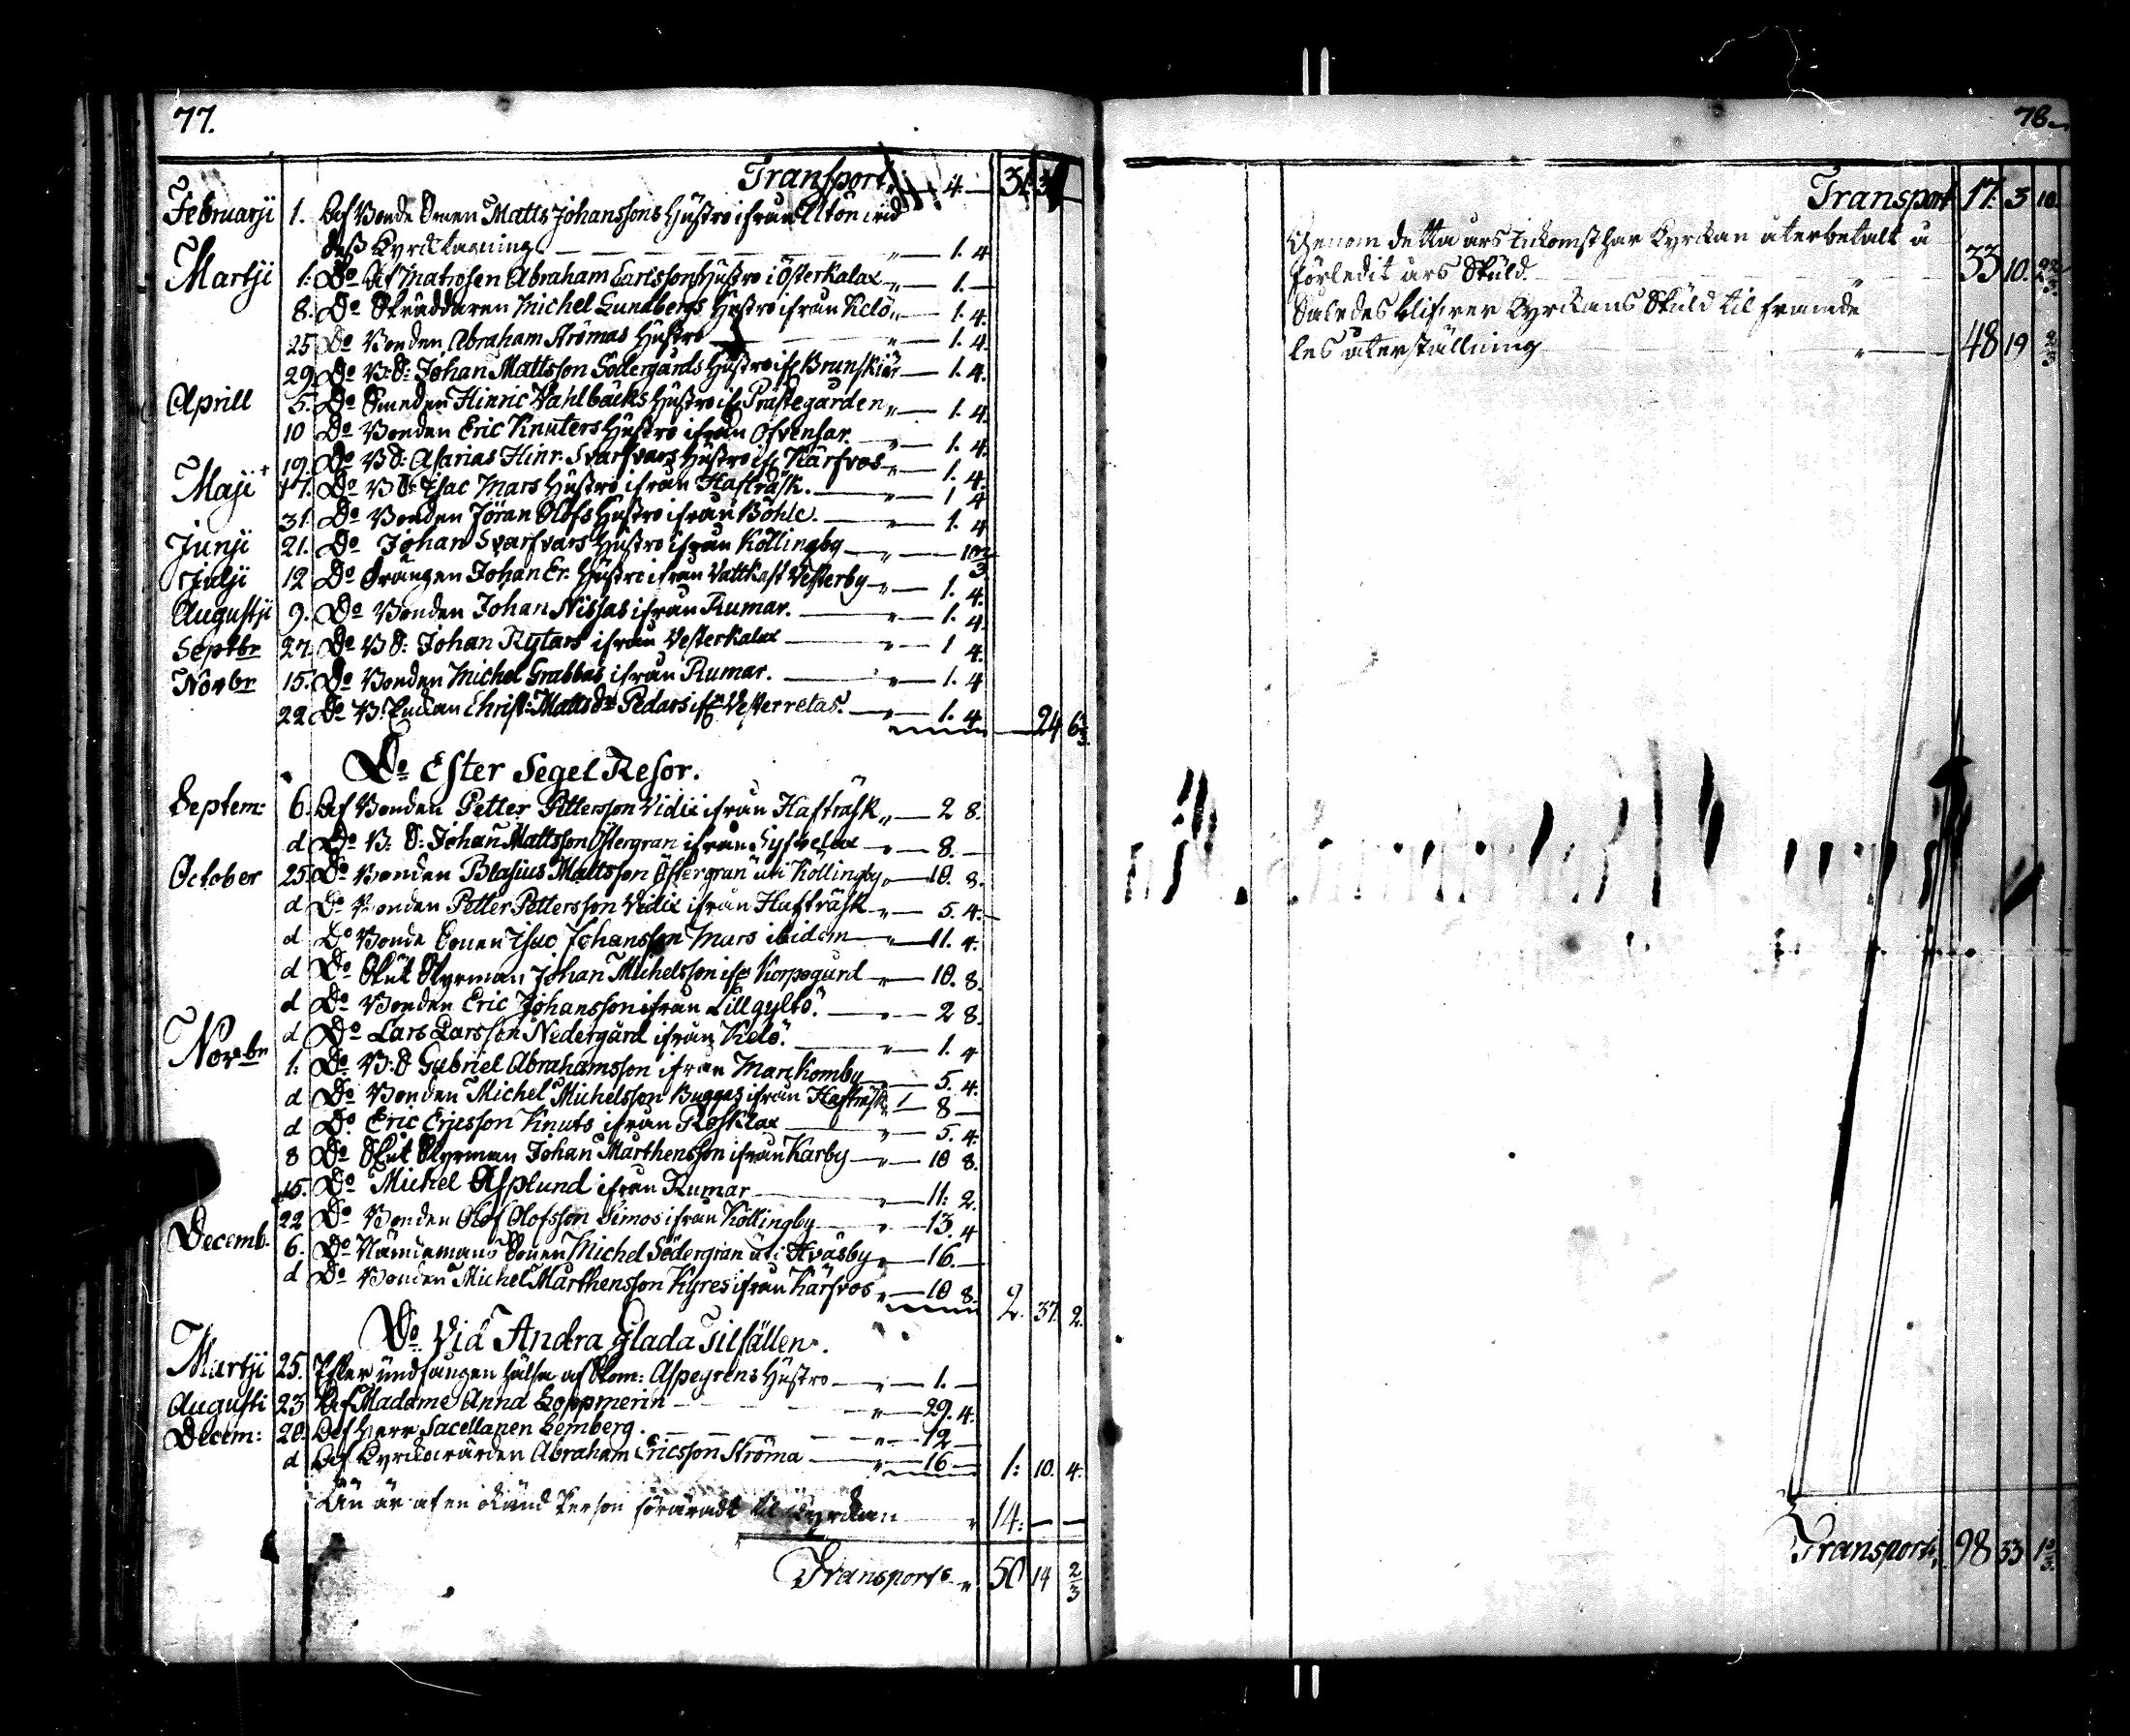 77.
Transport „ — 4. —
Februarji 1. Af Bonde Sonen Matts Johanssons Hustro ifrån Utön vid
dess Kyrcktagning — „ — 1. 4
Martji 1. Do Af Matrosen Abraham Carlssons Hustro i Österkalax „ — 1. —
8. Do Skräddaren Michel Lundbergs Hustro ifrån Kelö „ — 1. 4.
25 Do Bonden Abraham Strömas Hustro „ — 1. 4.
29. Do B: S: Johan Mattsson Södergårds Hustro ifr Brunskiär — 1. 4.
Aprill 5. Do Smeden Hinric Vahlbäcks Hustro ifr Prästegården „ — 1. 4.
10 Do Bonden Eric Knuters Hustro ifrån Öfvensar. „ — 1. 4.
19. Do B S: Asarias Hinr: Svarfvars Hustro ifr Kärfvos „ — 1. 4.
Maji 17. Do B S: Isac Mars Hustro ifrån Hafträsk. „ — 1 4
31. Do Bonden Jöran Olofs Hustro ifrån Böhle. „ — 1. 4
Junji 21. Do Johan Svarfvars Hustro ifrån Köllingby „ —
Julji 12 Do Drängen Johan Er. Hustro ifrån Vattkast Vesterby „ — 1. 4.
Augustji 9. Do Bonden Johan Nissas ifrån Rumar. „ — 1. 4.
Septbr 27. Do B S: Johan Rytars ifrån Vesterkalax „ — 1 4.
Novbr 15. Do Bonden Michel Grabbas ifrån Rumar. „ — 1. 4
22. Do B: Enckan Christ: Matts dr Pedars ifr Vesterretas. „ — 1. 4. — 24 6 2/3.
Do Efter Segel Resor.
Septem: 6. Af Bonden Petter Pettersson Vidix ifrån Hafträsk „ — 2 8.
d Do B: S: Johan Mattsson Östergran ifrån Lyfvelax „ — 8. —
October 25. Do Bonden Blasius Mattsson Östergran uti Köllingby „ — 10. 8.
d Do Bonden Petter Pettersson Vidix ifrån Hafträsk „ — 5. 4.
d Do Bonde Sonen Isac Johansson Mars ibidem — 11. 4.
d Do Skut Styrman Johan Michelsson ifr Korpogård „ — 10. 8.
d Do Bonden Eric Johansson ifrån Lillgyltö. „ — 2 8.
d Do Lars Larsson Nedergård ifrån Kelö. „ — 1. 4
Novbr 1: Do B: S Gabriel Abrahamsson ifrån Marckomby — 5. 4.
d Do Bonden Michel Michelsson Buggas ifrån Hafträsk „ — 8 —
d Do Eric Ericsson Knuts ifrån Rosklax „ — 5. 4.
8 Do Skut Styrman Johan Marthensson ifrån Karby „ — 10 8.
15. Do Michel Asplund ifrån Rumar „ — 11: 2.
22 Do Bonden Olof Olofsson Simos ifrån Köllingby „ — 13. 4
Decemb. 6. Do Nämdemans Sonen Michel Södergran uti Åväsby „ — 16. —
d Do Bonden Michel Marthensson Kyres ifrån Kärfvos „ — 10 8. 2. 37. 2.
Do Vid Andra Glada Tilfällen.
Martji 25. Efter undfången hälsa af Kom: Aspegrens Hustro „ — 1. —
Augusti 23 Af Madame Anna Loppmerin „ — 29. 4.
Decem: 20. Af Herr Sacellanen Lemberg. „ — 12 —
d Af Kyrckovärden Abraham Ericsson Ströma „ — 16 — 1: 10. 4.
Än är af en okänd Person föräradt til Kyrckan „ 14: — —
Transport „ 50 14 2/3
78.
Transport 17: 3 10.
Genom detta års Inkomst har Kyrckan återbetalt å
förledit års Skuld 33 10.
Således blifver Kyrckans Skuld til framde
les återställning „ 48 19 2/3
Transport „ 98 33 10/3.